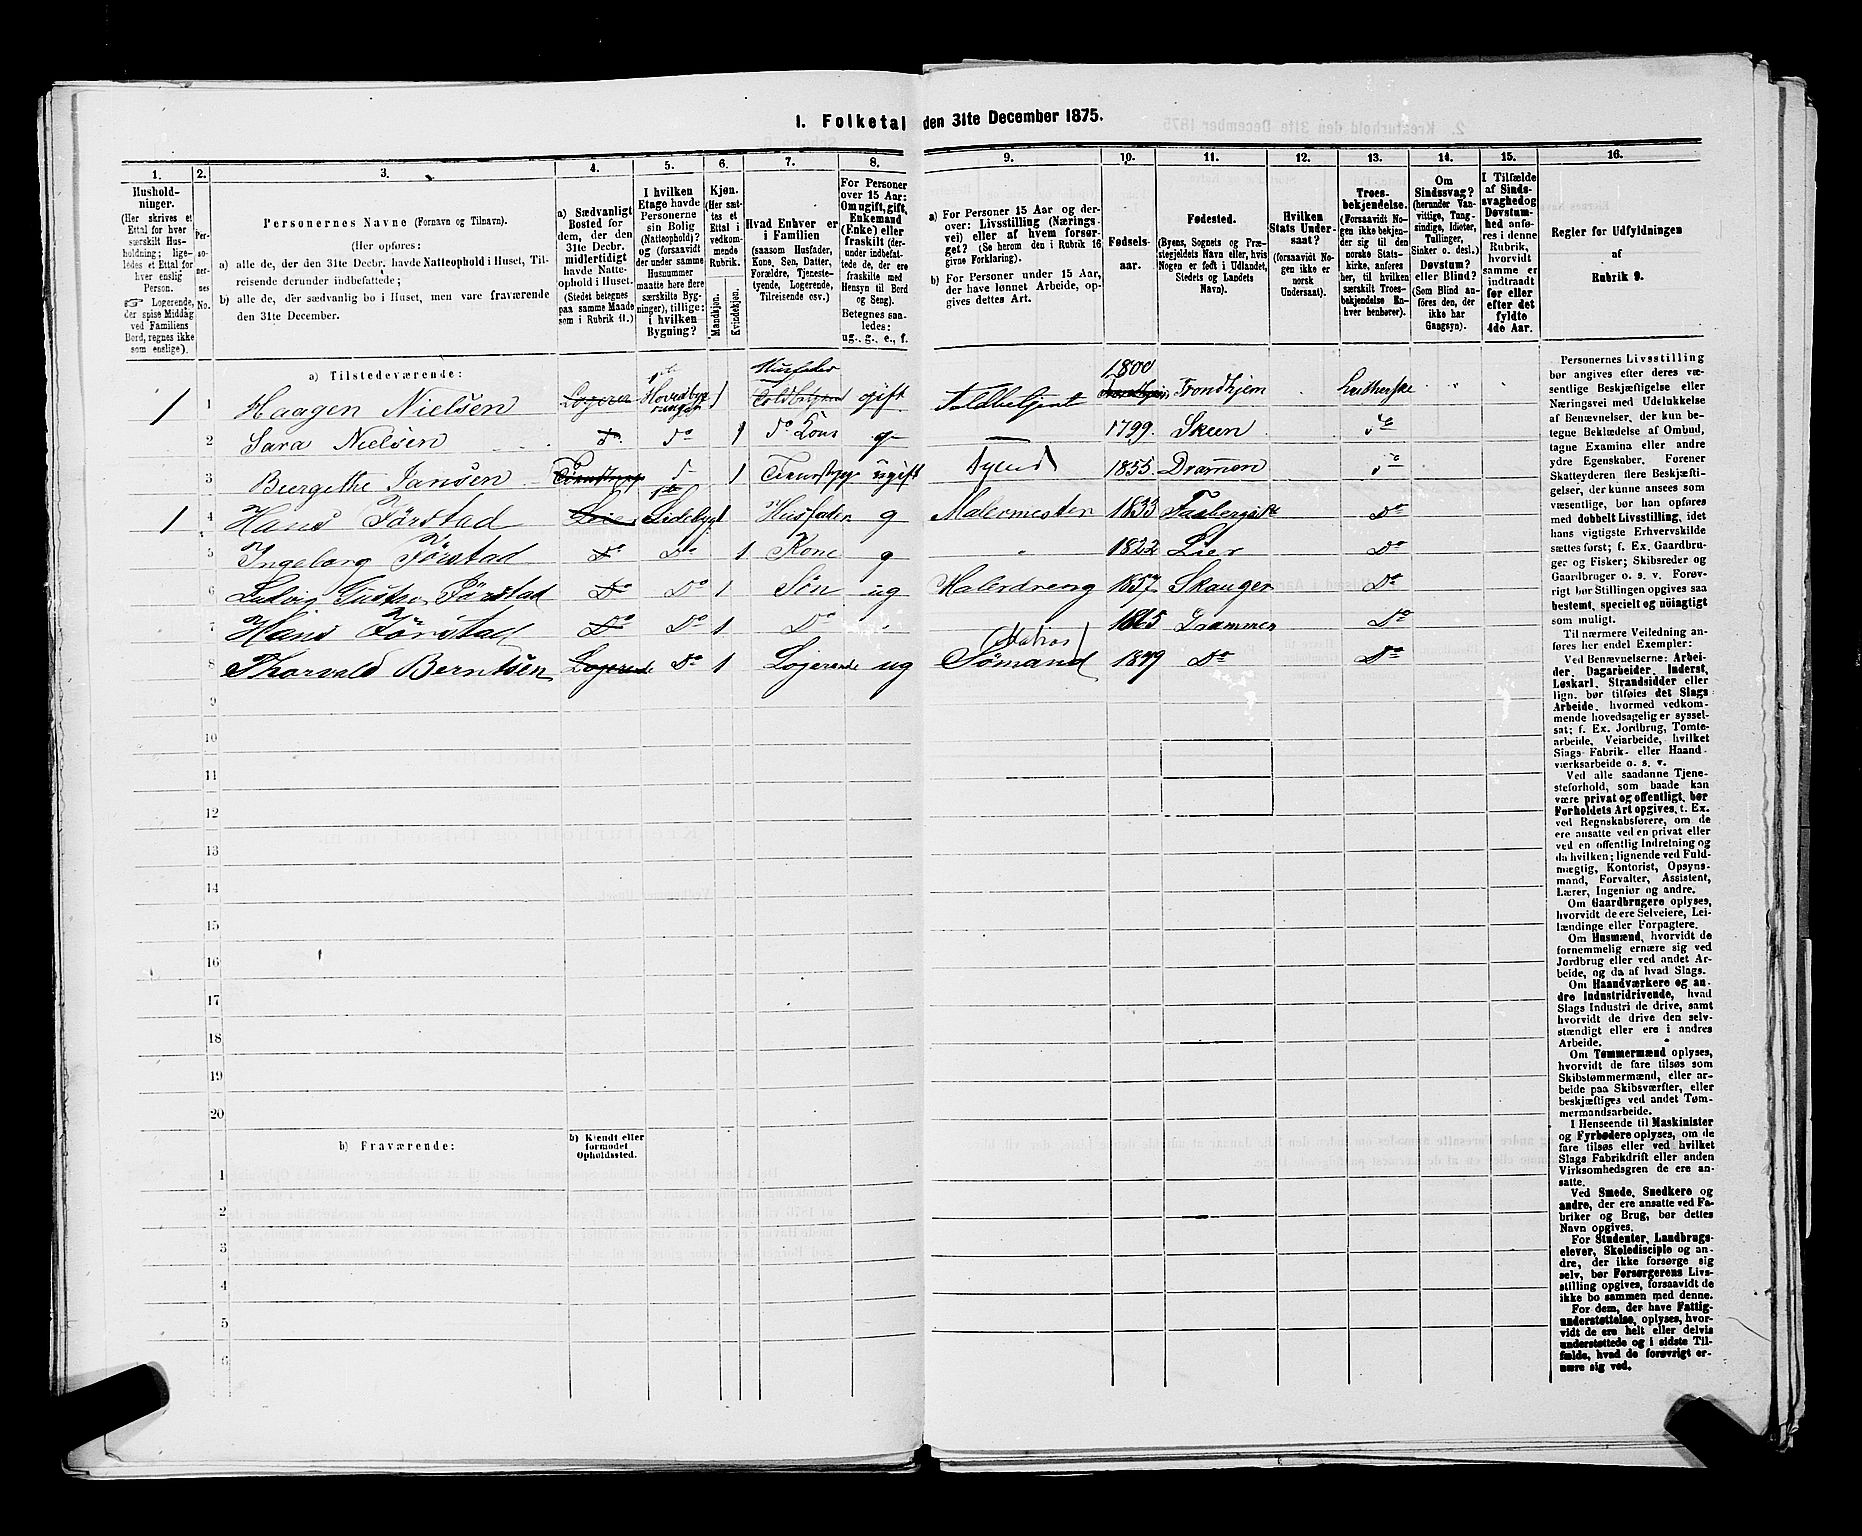 1. Folketal den 31te December 1875.
1. 2. 3. 4. 5. 6. 7. 8. 9. 10. 11. 12. 13. 14. 15. 16.
Hushold-
ninger.
(Her skrives et
Ettal for hver
særskilt Hus-
holdning; lige-
ledes et Ettal for
hver enslig
Person.
☞ Logerende,
der spise Middag
ved Familiens
Bord, regnes ikke
som enslige).
Per-
so-
ner-
nes
No.
Personernes Navne (Fornavn og Tilnavn).
(Her opføres:
a) alle de, der den 31te Decbr. havde Natteophold i Huset, Til-
reisende derunder indbefattede;
b) alle de, der sædvanlig bo i Huset, men vare fraværende
den 31te December.
a) Sædvanligt
Bosted for
dem, der den
31te Decbr.
midlertidigt
havde Natte-
ophold i Huset.
(Stedet betegnes
paa samme Maade
som i Rubrik 11.)
I hvilken
Etage havde
Personerne
sin Bolig
(Natteophold)?
og (forsaavidt
der under samme
Husnummer
maatte høre flere
særskilte Byg-
ninger), tillige:
i hvilken
Bygning?
Kjøn.
(Her sæt-
tes et
Ettal i
vedkom-
mende
Rubrik.
Mandkjøn.
Kvindekjøn.
Hvad Enhver er
i Familien
(saasom Husfader,
Kone, Søn, Datter,
Forældre, Tjeneste-
tyende, Logerende,
Tilreisende osv.)
For Personer
over 15 Aar:
Om ugift, gift,
Enkemand
(Enke) eller
fraskilt (der-
under indbefat-
tede de, der ere
fraskilte med
Hensyn til Bord
og Seng).
Betegnes saa-
ledes:
ug., g., e., f.
a) For Personer 15 Aar og der-
over: Livsstilling (Nærings-
vei) eller af hvem forsør-
get? (Se herom den i Rubrik 16
givne Forklaring).
b) For Personer under 15 Aar,
der have lønnet Arbeide, op-
gives dettes Art.
Fødsels-
aar.
Fødested.
(Byens, Sognets og Præ-
stegjeldets Navn eller, hvis
Nogen er født i Udlandet,
Stedets og Landets
Navn).
Hvilken
Stats Under-
saat?
(forsaavidt No-
gen ikke er
norsk
Undersaat).
Troes-
bekjendelse.
(Forsaavidt No-
gen ikke bekjen-
der sig til den
norske Stats-
kirke, anføres
her, til hvilken
særskilt Troes-
bekjendelse En-
hver henhører).
Om
Sindssvag?
(herunder Van-
vittige, Tung-
sindige, Idioter,
Tullinger,
Sinker o. desl.)
Døvstum?
eller Blind?
(Som Blind an-
føres den, der
ikke har
Gangsyn).
I Tilfælde
af Sinds-
svaghed og
Døvstum-
hed anfø-
res i denne
Rubrik,
hvorvidt
samme er
indtraadt
før eller
efter det
fyldte
4de Aar.
Regler for Udfyldningen
af
Rubrik 9.
a) Tilstedeværende:
1 1 Haagen Nielsen Logerer 1ste Hovedbyg ningen 1 Husfader gift Toldbetjent 1800 Trondhjem Lutherske
2 Sara Nielsen do do 1 do Kone g — 1799. Skien do
3 Buergethe Jansen 1 ugift Tyend 1855. Drammen do
1 4 Hans Førstad Sidebyg 1 Husfader g Malermester 1833 do
5 Ingeborg Førstad do do 1 Kone g 1822 Lier do
6 Ludvig Gustav Førstad do do 1 Søn ug Malerdreng 1857 Skauger do
7 Hans Førstad do do 1 do 1865 Drammen do
8 Thorvald Berntsen Logerende do 1 Lojerende ug Matros Sømand 1849 do do
9
10
11
12
13
14
15
16
17
18
19
20
b) Fraværende:
b) Kjendt eller
formodet
Opholdssted.
1
2
3
4
5
6
Personernes Livsstilling
bør angives efter deres væ-
sentlige Beskjæftigelse eller
Næringsvei med Udelukkelse
af Benævnelser, der kun be-
tegne Beklædelse af Ombud,
tagne Examina eller andre
ydre Egenskaber. Forener
Skatteyderen flere Beskjæfti-
gelser, der kunne ansees som
væsentlige, bør han opføres
med dobbelt Livsstilling, idet
hans vigtigste Erhvervskilde
sættes først; f. Ex. Gaardbru-
ger og Fisker; Skibsreder og
Gaardbruger o. s. v. Forøv-
rigt bør Stillingen opgives saa
bestemt, specielt og nøiagtigt
som muligt.
Til nærmere Veiledning an-
føres her endel Exempler:
Ved Benævnelserne: Arbei-
der, Dagarbeider, Inderst,
Løskarl, Strandsidder eller
lign. bør tilføies det Slags
Arbeide, hvormed vedkom-
mende hovedsagelig er syssel-
sat; f. Ex. Jordbrug, Tomte-
arbeide, Veiarbeide, hvilket
Slags Fabrik- eller Haand-
værksarbeide o. s. v.
Ved alle saadanne Tjene-
steforhold, som baade kan
være privat og offentligt, bør
Forholdets Art opgives, t. Ex.
ved Regnskabsførere, om de
ere ansatte ved en privat eller
ved en offentlig Indretning og
da hvilken; lignende ved Fuld-
mægtig, Kontorist, Opsyns-
mand, Forvalter, Assistent,
Lærer, Ingeniør og andre.
Om Gaardbrugere oplyses,
hvorvidt de ere Selveiere, Lei-
lændinge eller Forpagtere.
Om Husmænd, hvorvidt de
fornemmelig ernære sig ved
Jordbrug eller ved andet Ar-
beide, og da af hvad Slags.
Om Haandværkere og an-
dre Industridrivende, hvad
Slags Industri de drive, samt
hvorvidt de drive den selv-
stændigt eller ere i andres
Arbeide.
Om Tømmermænd oplyses,
hvorvidt de fare tilsøs som
Skibstømmermænd, eller ar-
beide paa Skibsværfter, eller
beskjæftiges ved andet Tøm-
mermandsarbeide.
I Henseende til Maskinister
og Fyrbødere oplyses, om de
fare tilsøs eller ved hvilket
Slags Fabrikdrift eller anden
Virksomhedsgren de ere an-
satte.
Ved Smede, Snedkere og
andre, der ere ansatte ved Fa-
briker og Brug, bør dettes
Navn opgives.
For Studenter, Landbrugs-
elever, Skoledisciple og an-
dre, der ikke forsørge sig
selv, bør Forsørgerens Livs-
stilling opgives, forsaavidt de
ikke bo sammen med denne.
For dem, der have Fattig-
understøttelse, oplyses, hvor-
vidt de ere helt eller delvis
understøttede og i sidste Til-
fælde, hvad de forøvrigt er-
nære sig ved.